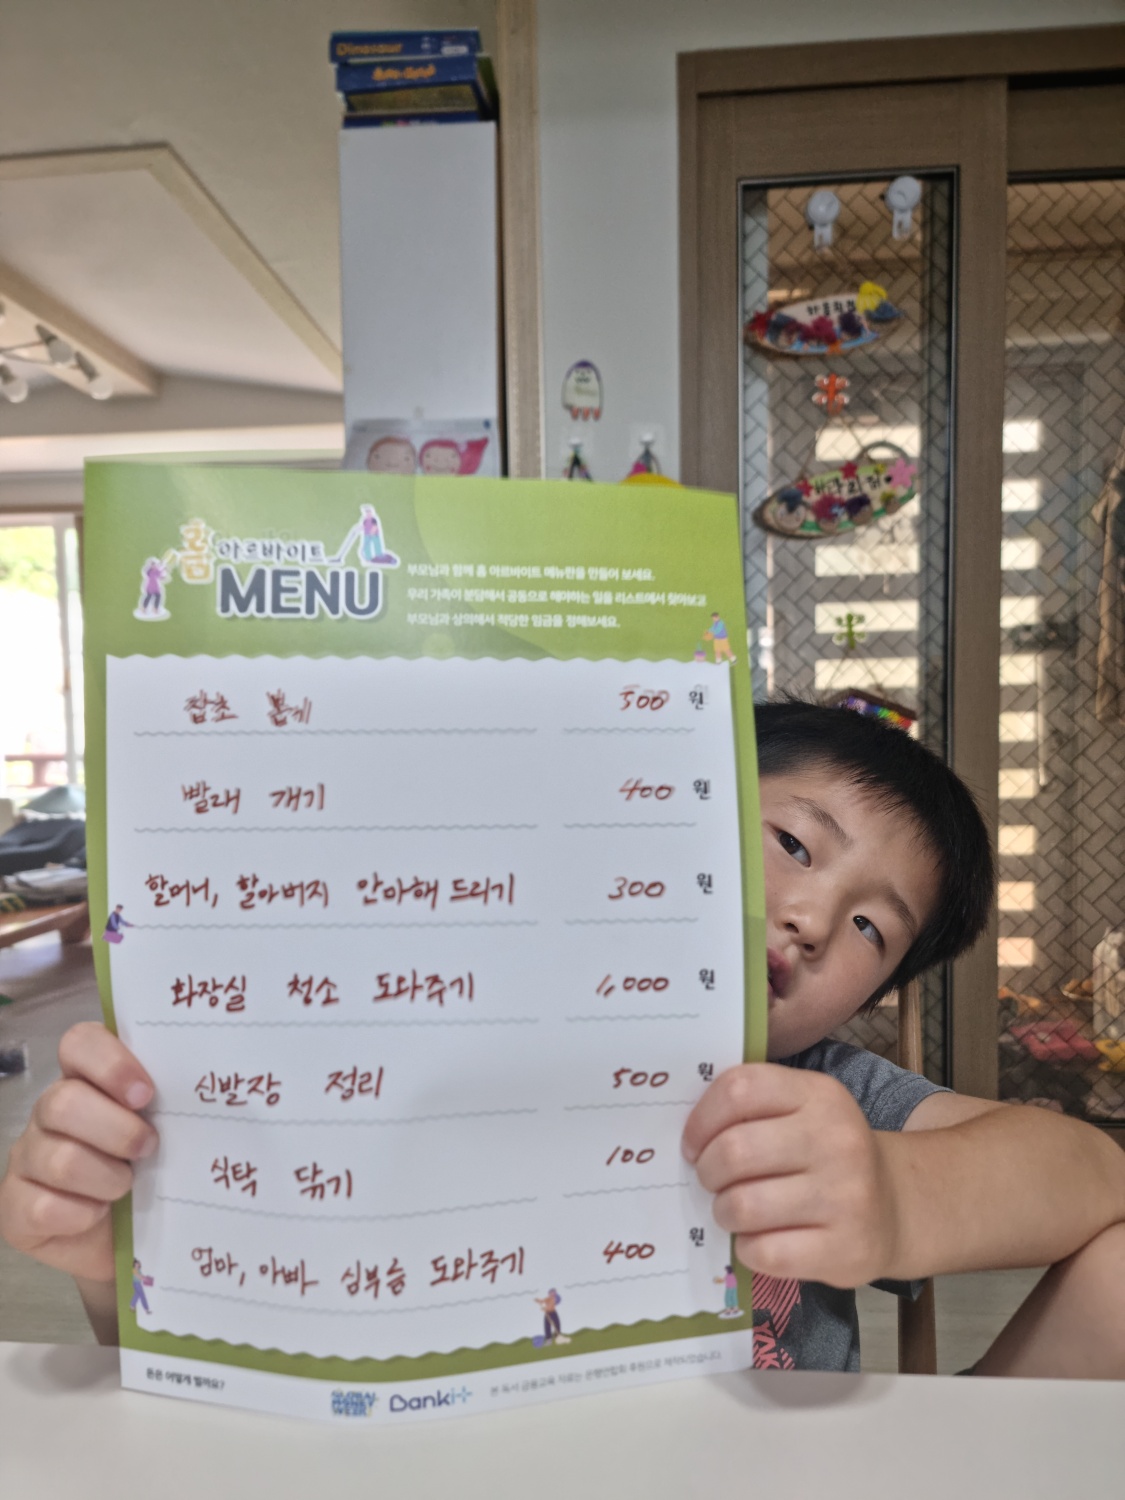 Dinosaur
홈 아르바이트
MENU
부모님과 함께 홈 아르바이트 메뉴판을 만들어 보세요.
우리 가족이 분담해서 공동으로 해야하는 일을 리스트에서 찾아보고
부모님과 상의해서 적당한 임금을 정해보세요.
잡초 뽑기 500 원
빨래 개기 400 원
할머니, 할아버지 안마해 드리기 300 원
화장실 청소 도와주기 1,000 원
신발장 정리 500 원
식탁 닦기 100
엄마, 아빠 심부름 도와주기 400 원
돈은 어떻게 벌까요?
GLOBAL MONEY WEEK
Banki+
본 독서 금융교육 자료는 은행연합회 후원으로 제작되었습니다.